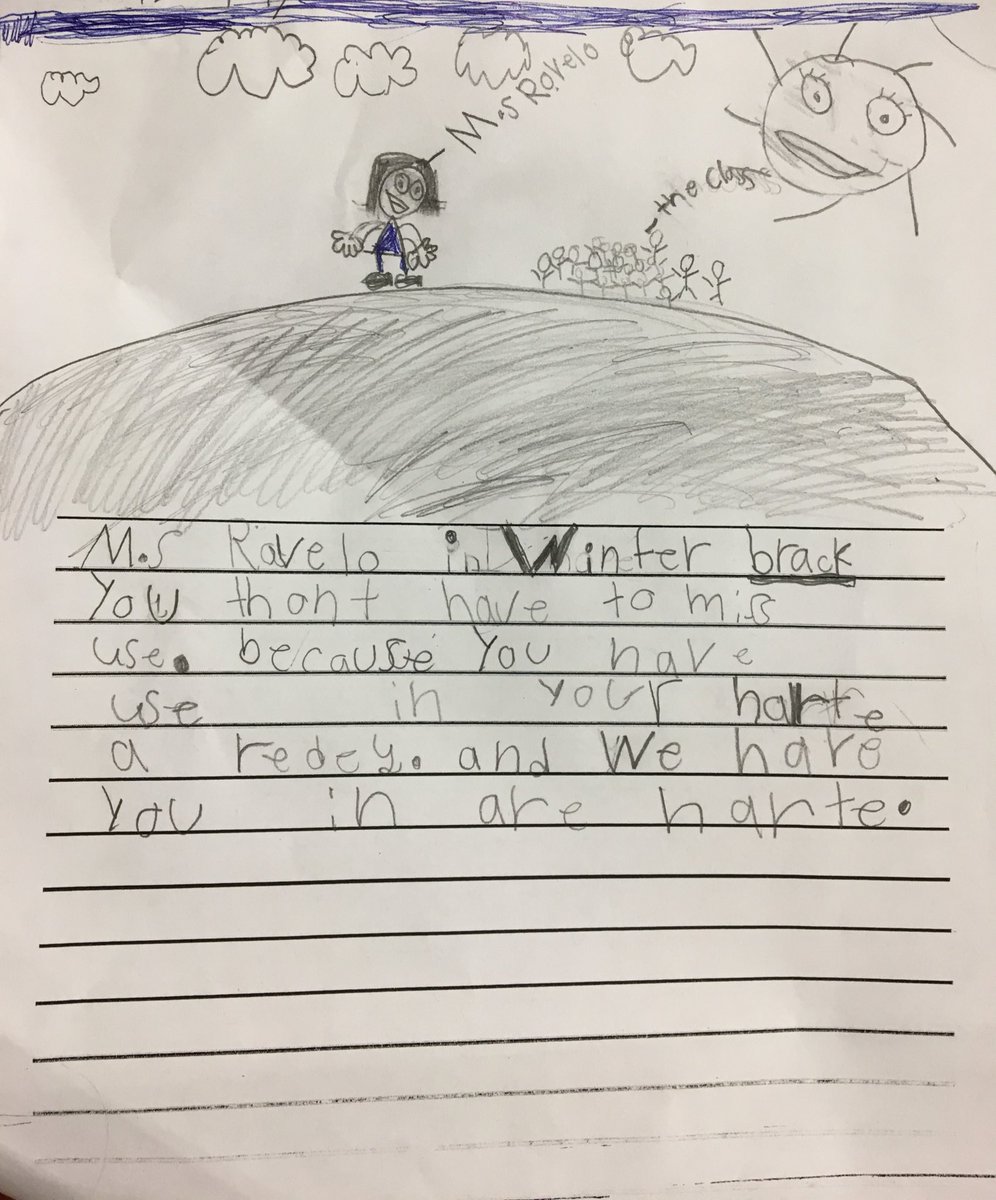 M.s Ravelo
the class
M.s Ravelo in Winter brack
You thont have to mis
use. because You have
use in your harte
a redey. and We have
You in are harte.